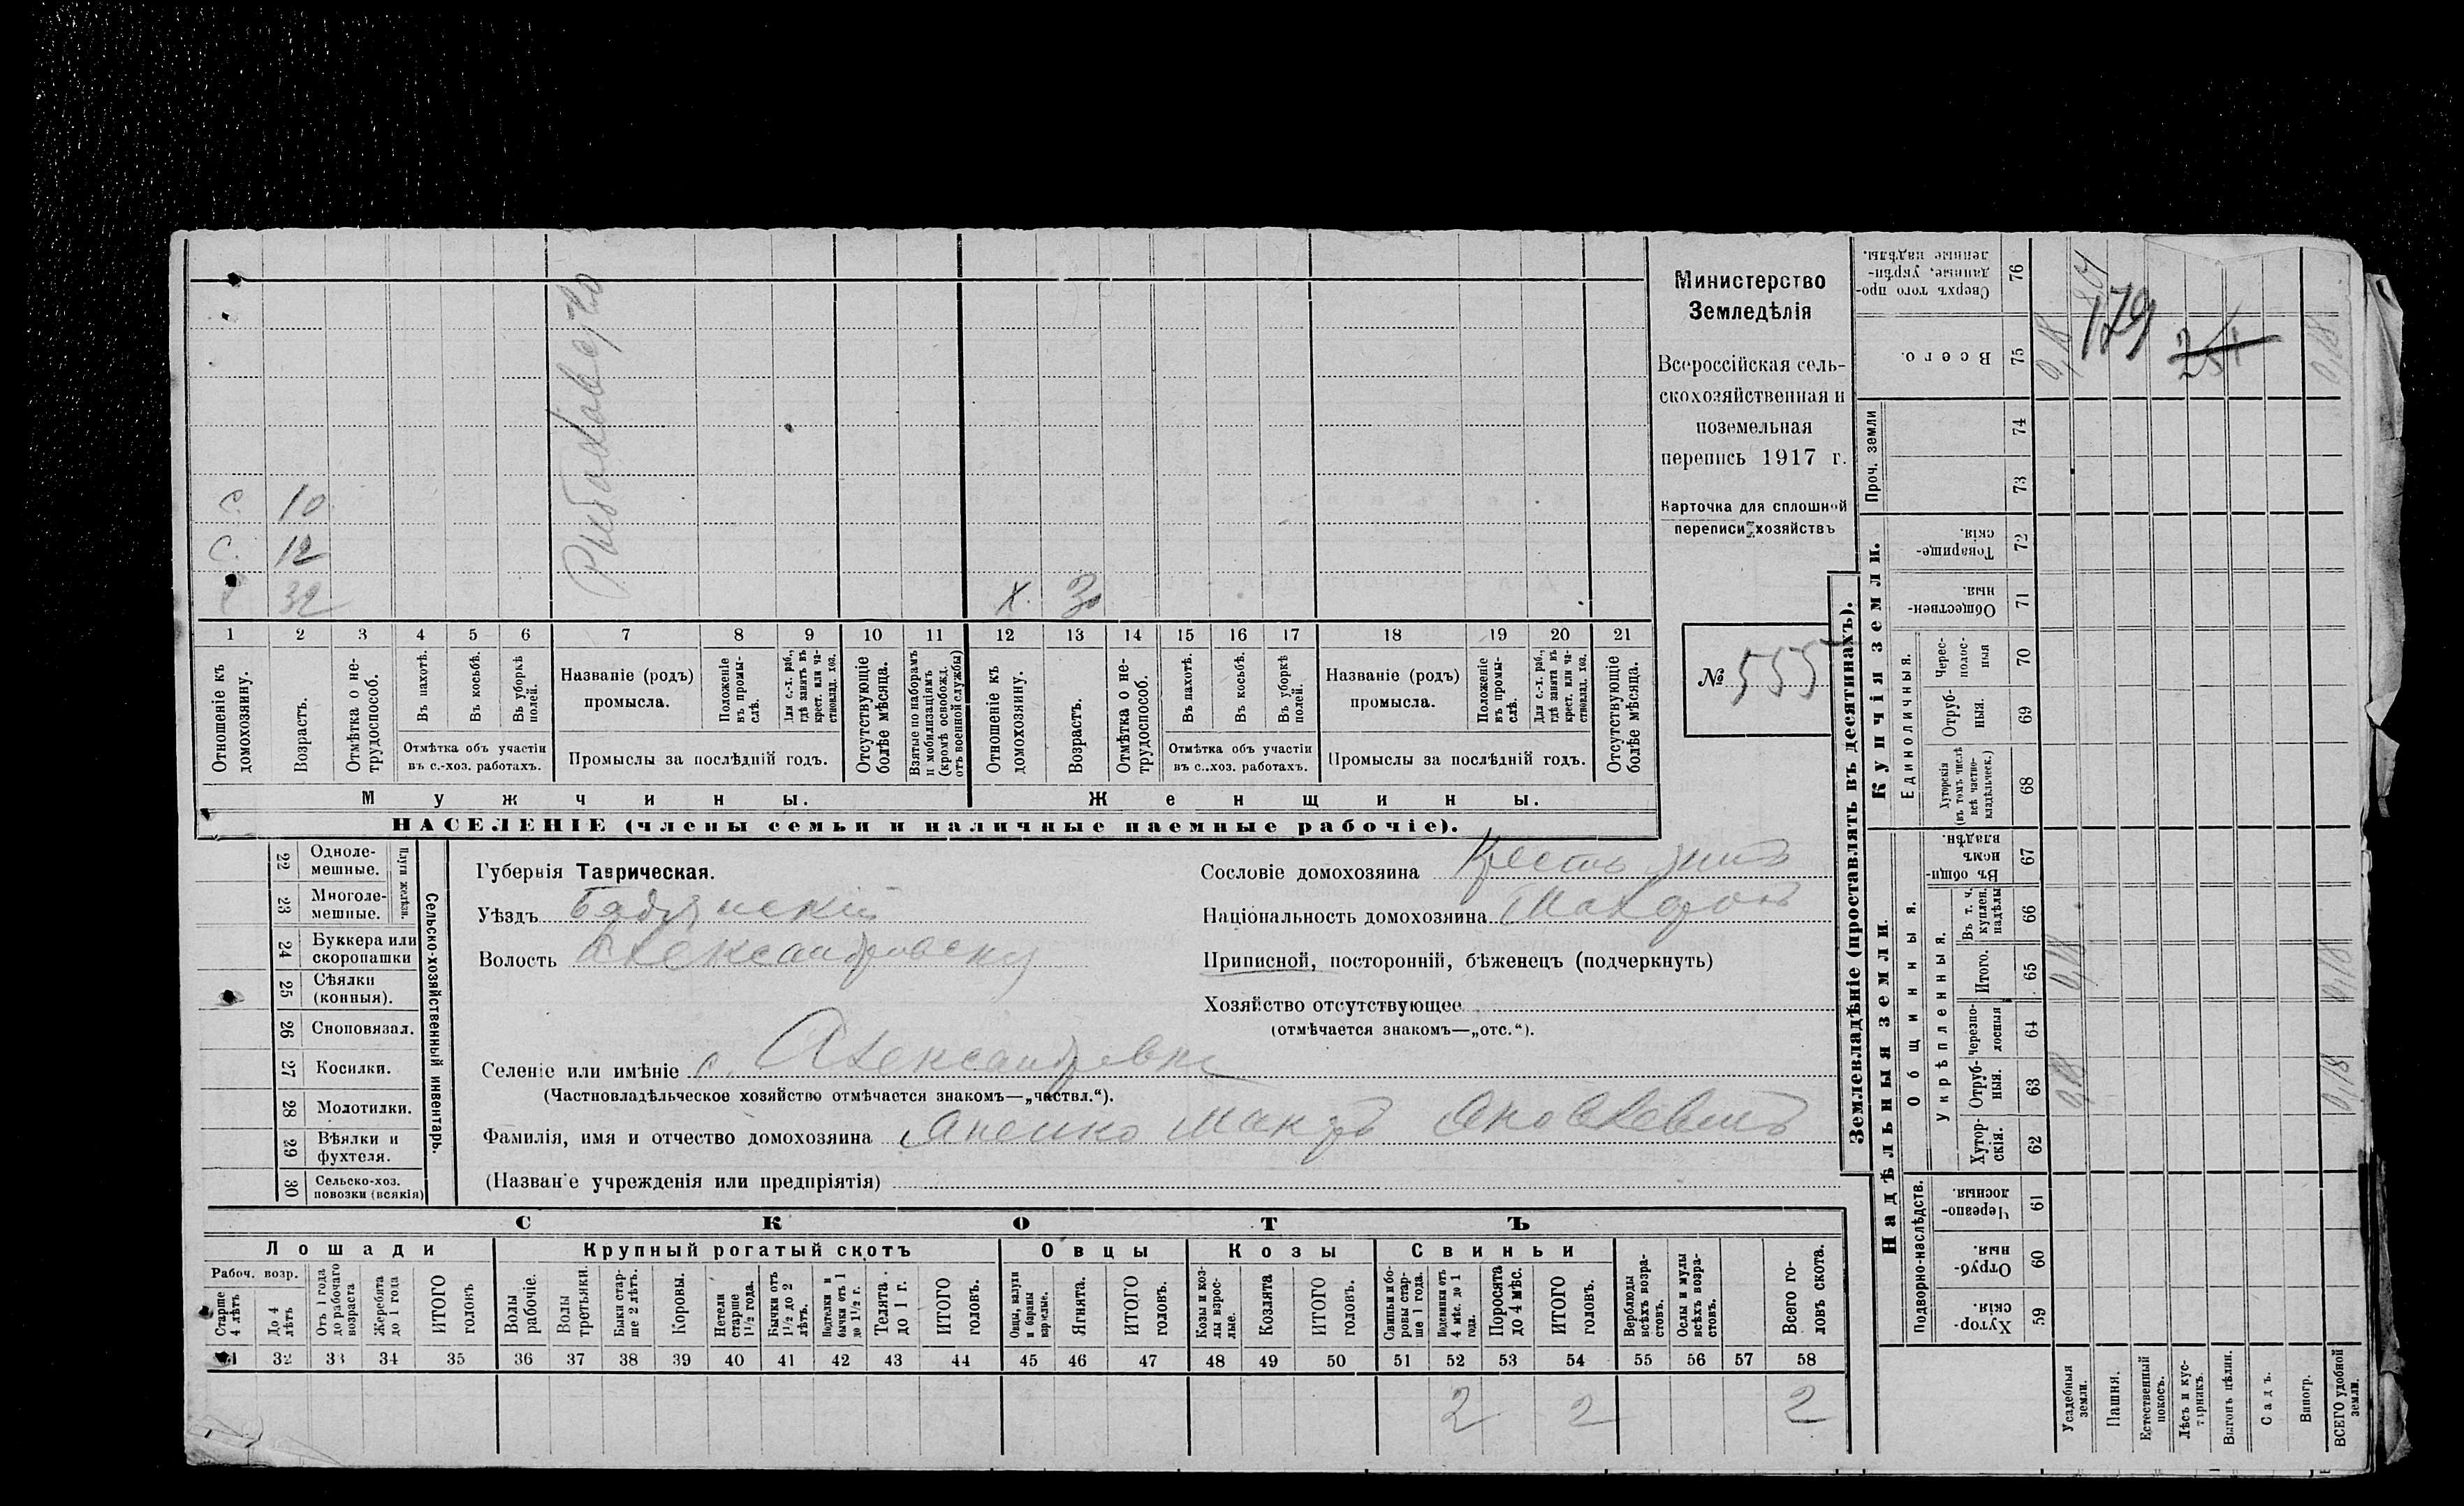 Министерство
Земледѣлія
Всероссійская сель-
скохозяйственная и
поземельная
перепись 1917 г.
Карточка для сплошной
переписи хозяйствъ
№ 555
Рыболовство
с. 10
с. 12
32
х. 3
1 2 3 4 5 6 7 8 9 10 11 12 13 14 15 16 17 18 19 20 21
Отношеніе къ домохозяину.
Возрастъ.
Отмѣтка о не-трудоспособ.
Въ пахотѣ.
Въ косьбѣ.
Въ уборкѣ полей.
Отмѣтка объ участіи
въ с.-хоз. работахъ.
Названіе (родъ)
промысла.
Положеніе въ промы-слѣ.
Для с.-х. раб., гдѣ занятъ въ крест. или ча-ствовлад. хоз.
Промыслы за послѣдній годъ.
Отсутствующіе болѣе мѣсяца.
Взятые по наборамъ и мобилизаціямъ (кромѣ освобожд. отъ военной службы)
Отношеніе къ домохозяину.
Возрастъ.
Отмѣтка о не-трудоспособ.
Въ пахотѣ.
Въ косьбѣ.
Въ уборкѣ полей.
Отмѣтка объ участіи
въ с..хоз. работахъ.
Названіе (родъ)
промысла.
Положеніе въ промы-слѣ.
Для с.-х. раб., гдѣ занята въ крест. или ча-ствовлад. хоз.
Промыслы за послѣдній годъ.
Отсутствующіе болѣе мѣсяца.
Мужчины. Женщины.
НАСЕЛЕНІЕ (члены семьи и наличные наемные рабочіе).
Сельско-хозяйственный инвентарь.
Плуги желѣзн.
22 Одноле-мешные.
23 Многоле-мешные.
24 Буккера или скоропашки
25 Сѣялки (конныя).
26 Сноповязал.
27 Косилки.
28 Молотилки.
29 Вѣялки и фухтеля.
30 Сельско-хоз. повозки (всякія)
Губернія Таврическая.
Уѣздъ
Волость
Селеніе или имѣніе с. Александровка
(Частновладѣльческое хозяйство отмѣчается знакомъ—„частвл.“).
Фамилія, имя и отчество домохозяина
(Названіе учрежденія или предпріятія)
Сословіе домохозяина
Національность домохозяина
Приписной, посторонній, бѣженецъ (подчеркнуть)
Хозяйство отсутствующее
(отмѣчается знакомъ—„отс.“).
СКОТЪ
Лошади
Рабоч. возр.
Старше 4 лѣтъ
До 4 лѣтъ
Отъ 1 года до рабочаго возраста
Жеребята до 1 года
ИТОГО головъ
Крупный рогатый скотъ
Волы рабочіе.
Волы третьяки.
Быки стар-ше 2 лѣтъ.
Коровы.
Нетели старше 1½ года.
Бычки отъ 1½ до 2 лѣтъ.
Подтелки и бычки отъ 1 до 1½ г.
Телята до 1 г.
ИТОГО головъ.
Овцы
Овцы, валухи и бараны взрослые.
Ягнята.
ИТОГО головъ.
Козы
Козы и коз-лы взрос-лые.
Козлята
ИТОГО головъ.
Свиньи
Свиньи и бо-ровы стар-ше 1 года.
Подсвинки отъ 4 мѣс. до 1 года.
Поросята до 4 мѣс.
ИТОГО головъ.
Верблюды всѣхъ возра-стовъ.
Ослы и мулы всѣхъ возра-стовъ.
Всего го-ловъ скота.
31 32 33 34 35 36 37 38 39 40 41 42 43 44 45 46 47 48 49 50 51 52 53 54 55 56 57 58
2 2 2
Землевладѣніе (проставлять въ десятинахъ).
Купчія земли.
Надѣльныя земли.
Сверхъ того про-данные, укрѣп-ленные надѣлы. 76
Всего. 75
Проч. земли
74
73
Товарище-скія 72
Обществен-ныя. 71
Единоличныя.
Черес-полос-ныя 70
Отруб-ныя. 69
Хуторскія (въ томъ числѣ всѣ частно-владѣльческ.) 68
Въ общи-номъ владѣн. 67
Общинныя.
Укрѣпленныя.
Въ т. ч. куплен. надѣлы 66
Итого. 65
Черезпо-лосныя 64
Отруб-ныя. 63
Хутор-скія. 62
Подворно-наслѣдств.
Черезпо-лосныя. 61
Отруб-ныя. 60
Хутор-скія. 59
Усадебныя земли.
Пашня.
Естественный покосъ.
Лѣсъ и кус-тарникъ.
Выгонъ цѣлин.
Садъ.
Виногр.
ВСЕГО удобной земли.
179
254
0,18
0,18
0,18
0,18
0,18
0,18